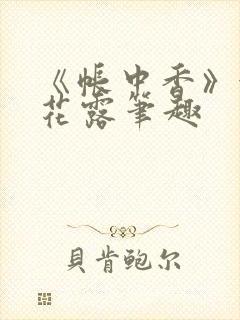 《帐中香》
花露笔趣
贝肯鲍尔